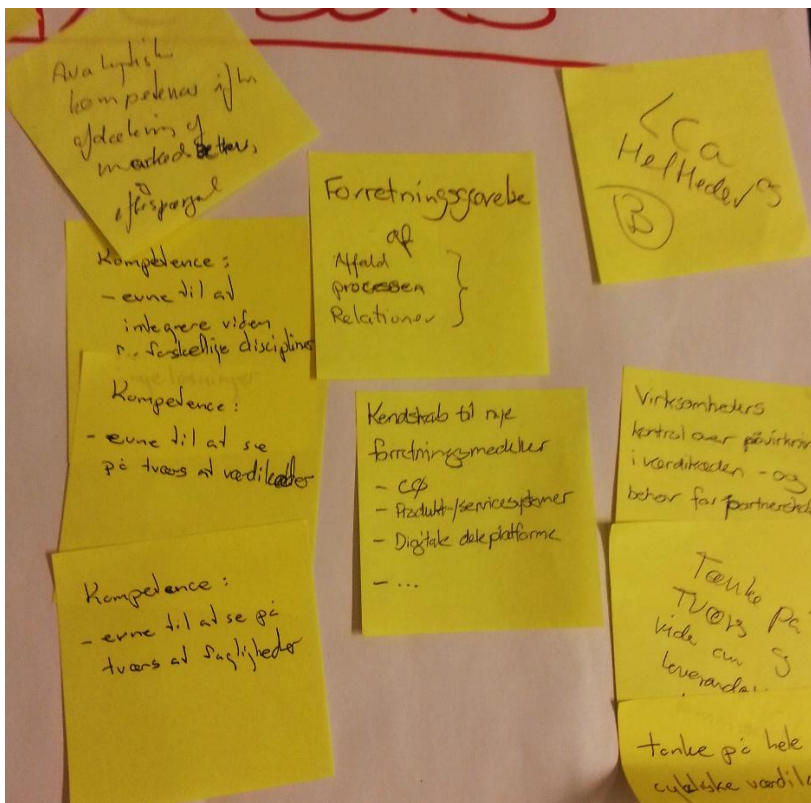 Analytisk
kompetence ift
afdækning af
markedsbehov,
efterspørgsel
Kompetence :
- evne til at
integrere viden
forskellige discipliner
Kompetence :
- evne til at se
på tværs af værdikæder
Kompetence :
- evne til at se på
tværs af fagligheder
Forretningsgørelse
af
Affald
processen
Relationer
Kendskab til nye
forretningsmodeller
- CØ
- Produkt-/servicesystemer
- Digitale deleplatforme
- ...
LCA
Helheder
B
Virksomheders
kontrol over
i værdikæden - og
behov for
Tænke på
Tværs
vide om
tænke på hele